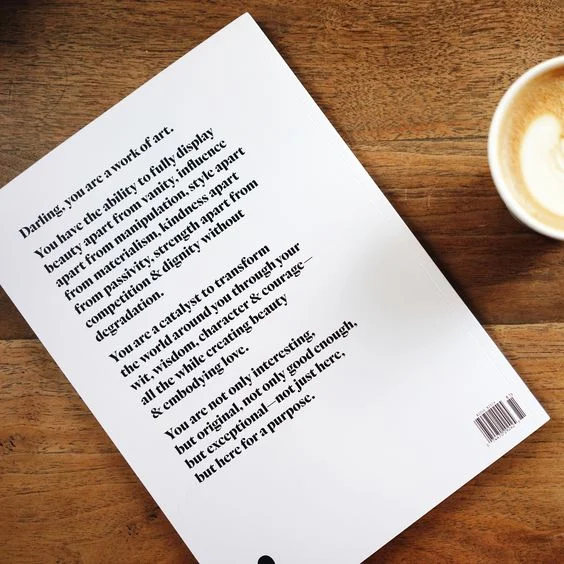 Darling, you are a work of art.
You have the ability to fully display
beauty apart from vanity, influence
apart from manipulation, style apart
from materialism, kindness apart
from passivity, strength apart from
competition & dignity without
degradation.
You are a catalyst to transform
the world around you through your
wit, wisdom, character & courage—
all the while creating beauty
& embodying love.
You are not only interesting,
but original, not only good enough,
but exceptional—not just here,
but here for a purpose.